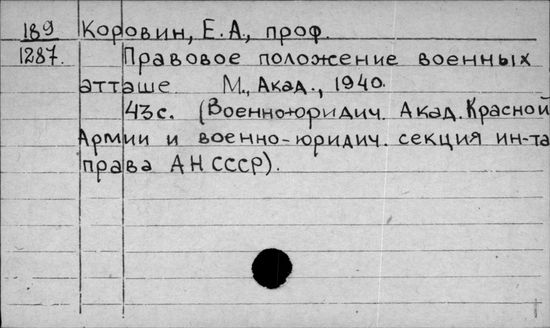 189
1287.
Коровин, Е.А., проф.
Правовое положение военных
атташе М., Акад., 1940.
43 с. (Военно-юридич. Акад. Красной
Армии и военно-юридич. секция ин-та
права АН СССР).